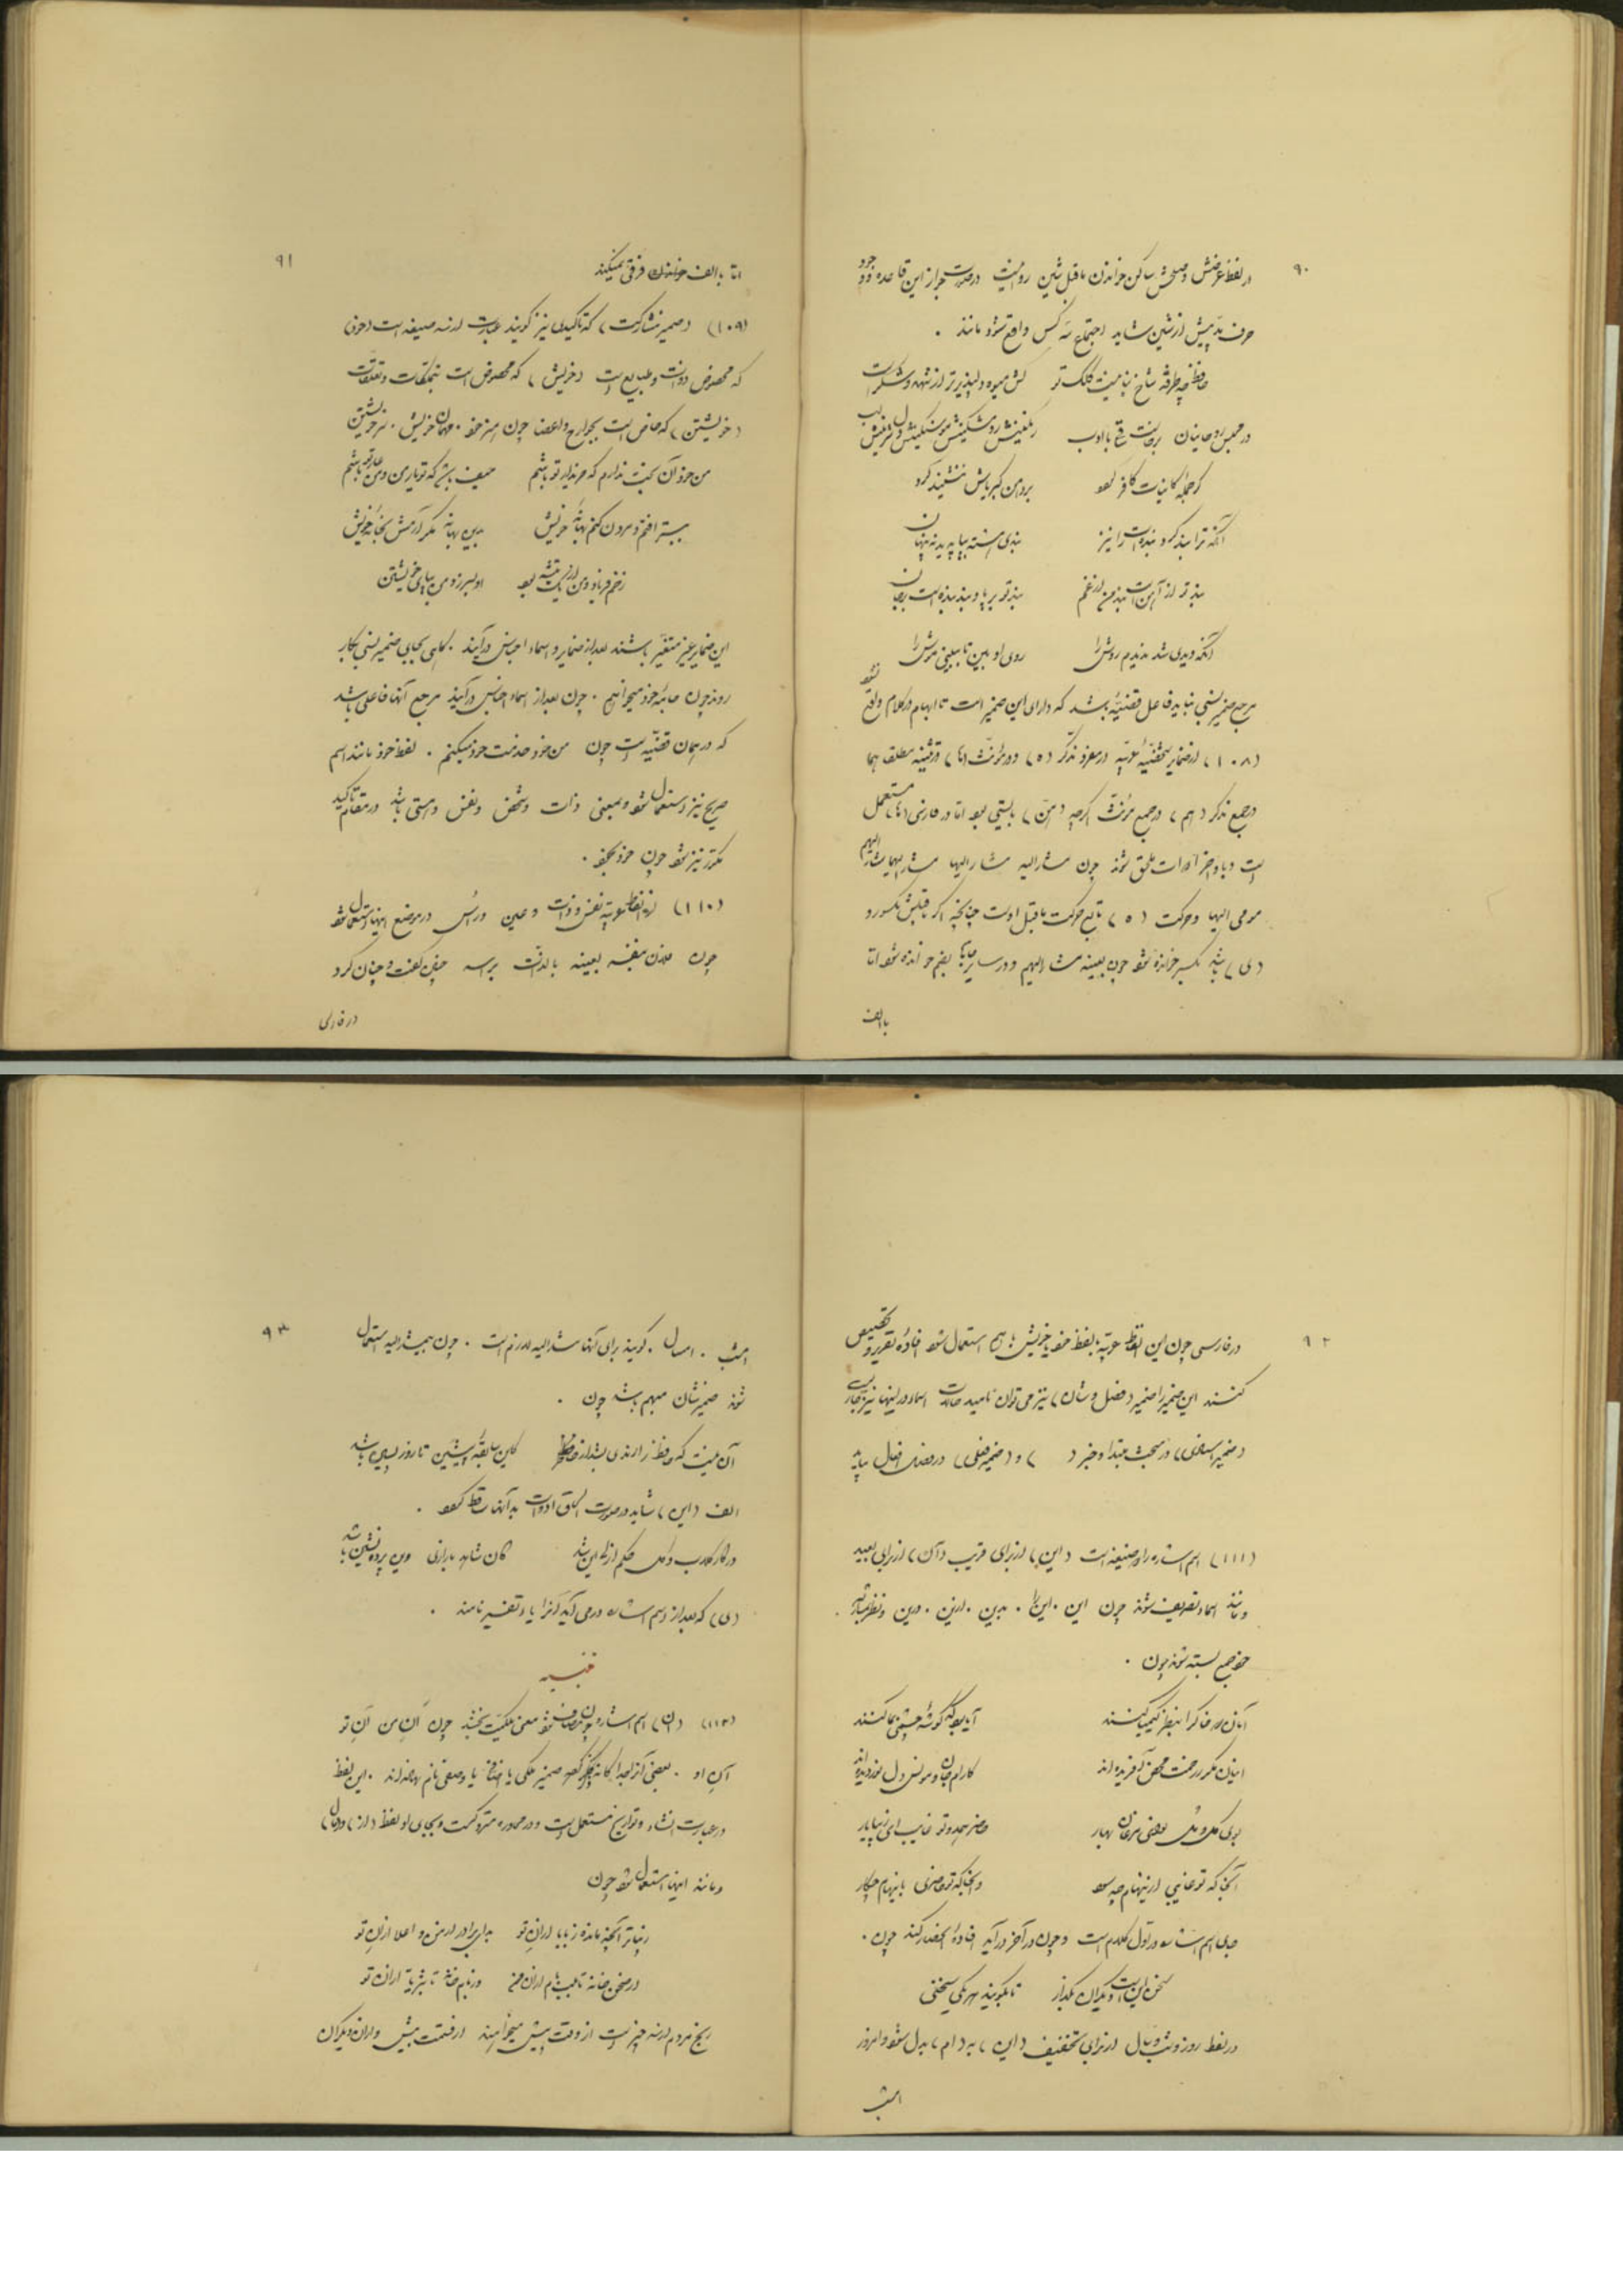 ۹۰
در لفظ عرضش و صحنش ساکن خواندن ماقبل شین روا نیست در صورت جواز این قاعده وجود
حرف مد پیش از شین شاید اجتماع سه کس واقع شود مانند ۰
حافظ چه طرفه شاخ نباتیست کلک تو کش میوه دلپذیرتر از شهد و شکر است
در مجلس روحانیان
گر جمله کاینات کافر بود بر دامن کبریاش ننشیند گرد
آنکه ترا بند کرد بنده است را نیز بندی
بند تو از آهن است بند من از غم بند تو بر پا و بند بنده است بر جان
آنکه ندیدی شد ندیدم روش را روی او بین تا ببینی موش را
مرجع ضمیر نسبی نباید فاعل قضیه باشد که دارای این ضمیر است تا ابهام در کلام واقع نشود
(۱۰۸) از ضمایر عربیه در مفرد مذکر (ه) و در مؤنث (ها) در تثنیه مطلقا هما
در جمع مذکر (هم) در جمع مؤنث اگرچه (هن) بایستی بود اما در فارسی (ها) مستعمل
است و با واخر ادوات ملحق شوند چون مشار الیه مشار الیها مشار الیهما مشار الیهم
مومی الیها و حرکت (ه) تابع حرکت ماقبل اوست چنانچه اگر ماقبلش مکسور و
(ی) باشد بکسر خوانده شود چون بعینه مشار الیهم و در سایر جایها بضم خوانده شود اما
با الف
۹۱
اما با الف خواندن فرقی نمیکند
(۱۰۹) (ضمیر مشارکت) که تاکیدی نیز گویند عبارت از سه صیغه است (خود)
که مخصوص ذوات و طبایع است (خویش) که مخصوص است بتملکات و تعلقات
(خویشتن) که خاص است بجوارح و اعضا چون من خود ۰ مهمان خویش ۰ سر خویشتن
من خود آن بخت ندارم که خریدار تو باشم حیف باشد که تو یار من و من یار تو باشم
ببستر افتم و مردن کنم بهانه خویش بدین بهانه مگر آرمش بخانه خویش
زخم فرهاد و من از یک تیشه بود او بسر زد من بپای خویشتن
این ضمایر غیر متغیر باشند بعد از ضمایر و اسماء اجناس درآیند گاهی بجای ضمیر نسبی بکار
روند چون خانه خود میخواهم ۰ چون بعد از اسماء اجناس درآیند مرجع آنها فاعلی باشد
که در همان قضیه است چون من خود خدمت خود میکنم ۰ لفظ خود مانند اسم
صریح نیز مستعمل شود و بمعنی ذات و شخص و نفس و هستی باشد در مقام تاکید
مکرر نیز شود چون خود بخود ۰
(۱۱۰) از الفاظ عربیه نفس و ذات و عین و رأس در موضع اینها استعمال شود
چون فلان بنفسه بعینه بالذات برأسه چنین گفت و چنان کرد
در فارسی
۹۲
در فارسی چون این الفاظ عربیه بلفظ خود یا خویش با هم استعمال شود افاده تقریر و تخصیص
کنند این ضمیر را ضمیر (فصل و شان) نیز می توان نامید حالات اسماء در اینها نیز جاریست
(ضمیر اسنادی) در مبحث مبتدا و خبر ( ) و (ضمیر فعلی) در فصل افعال بیاید
(۱۱۱) اسم اشاره را دو صیغه است (این) از برای قریب (آن) از برای بعید
و مانند اسماء تصریف شوند چون این ۰ این را ۰ بدین ۰ ازین ۰ درین و نظر بمشار الیه
خود جمع بسته شوند چون ۰
آنان که خاک را بنظر کیمیا کنند آیا بود که گوشه چشمی بما کنند
اینان مگر ز رحمت محض آفریده اند کارام جان و مونس دل نور دیده اند
بوی گل و مل نوای مرغان بهار حاضر همه و تو غایب ای زیبا یار
آنجا که تو غایبی ازینهام چه سود و آنجا که تو حاضری باینهام چکار
جای اسم اشاره در اول کلام است و چون در آخر درآید افاده انحصار کند چون ۰
سخن اینست دیگران بگذار تا بگویند هر یکی سخنی
در لفظ روز و شب و سال از برای تخفیف (این) به (ام) بدل شود امروز
امشب
۹۳
امشب ۰ امسال ۰ گویند برای آنها مشار الیه لازم است ۰ چون بی مشار الیه استعمال
شوند ضمیرشان مبهم باشد چون ۰
آن نیست که حافظ را رندی بشد از خاطر کاین سابقه پیشین تا روز پسین باشد
الف (این) شاید در صورت الحاق ادوات به آنها ساقط شود ۰
در کار گلاب و گل حکم ازلی این شد کان شاهد بازاری وین پرده نشین باشد
(ی) که بعد از اسم اشاره درمی آید آنرا یاء تفسیر نامند ۰
تنبیه
(۱۱۲) (آن) اسم اشاره چون مضاف شود معنی ملکیت بخشد چون آن من آن تو
آن او ۰ بعضی آنرا جداگانه ذکر کرده ضمیر ملکی یا اضافی یا وصفی نام نهاده اند ۰ این لفظ
در عبارت انشاء و تواریخ مستعمل است و در محاوره متروکست و بجای او لفظ (از) و (مال)
و مانند اینها استعمال شود چون
زیباتر آنچه مانده ز بابا از آن تو بد ای برادر از من و اعلا از آن تو
در صحن خانه تا بلب بام از آن من وز بام خانه تا بثریا از آن تو
رنج مردم از سه چیز است از وقت پیش میخواهند از قسمت بیش و از آن دیگران